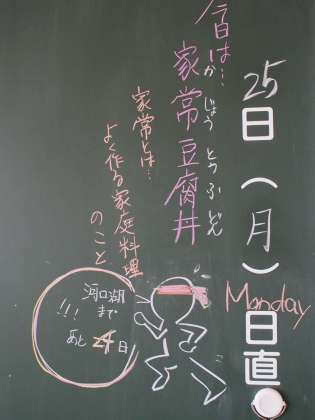 25日(月)
Monday
日直
今日は…
家常豆腐丼
かじょうとうふどん
家常とは…
よく作る家庭料理
のこと
河口湖
まで
あと 日
!!!